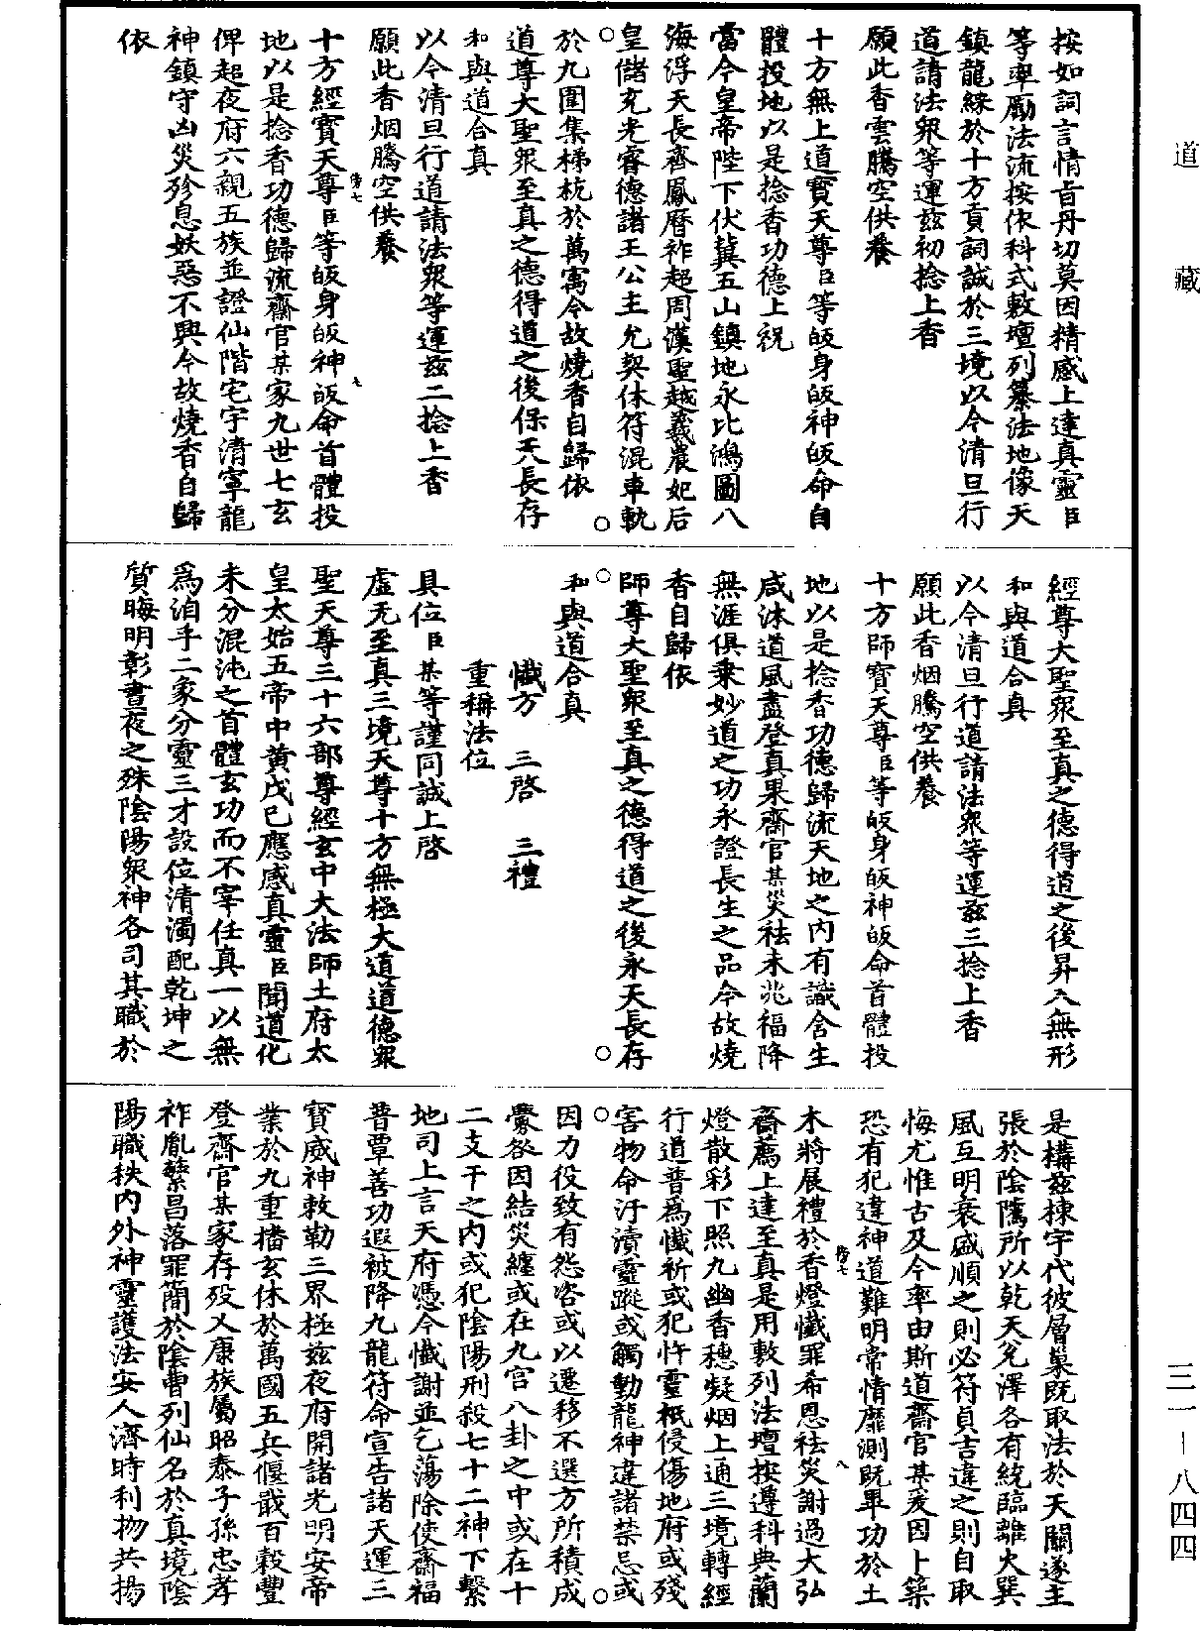 道藏
按如詞言情旨丹切莫因精感上達真靈臣
等率勵法流按依科式敷壇列纂法地像天
鎮龍綵於十方貢詞誠於三境以今清旦行
道請法衆等運玆初捻上香
願此香雲騰空供養
十方無上道寳天尊臣等皈身皈神皈命自
體投地以是捻香功德上祝
當今皇帝陛下伏冀五山鎮地永比鴻圖八
海浮天長齊鳳曆祚超周漢聖越羲農妃后
皇儲充光睿德諸王公主允契休符混車軌
於九圍集梯杭於萬㝢今故燒香自歸依
道尊大聖衆至真之德得道之後保天長存
和與道合真
以今清旦行道請法衆等運玆二捻上香
願此香烟騰空供養
十方經寳天尊臣等皈身皈神皈命首體投
地以是捻香功德歸流齋官某家九世七玄
俾超夜府六親五族並證仙階宅宇清寧龍
神鎮守凶災殄息妖惡不興今故燒香自歸
依
經尊大聖衆至真之德得道之後昇入無形
和與道合真
以今清旦行道請法衆等運玆三捻上香
願此香烟騰空供養
十方師寳天尊臣等皈身皈神皈命首體投
地以是捻香功德歸流天地之内有識含生
咸沐道風盡登真果齋官某災祛未兆福降
無涯俱乘妙道之功永證長生之品今故燒
香自歸依
師尊大聖衆至真之德得道之後永天長存
和與道合真
懺方　三啓　三禮
重稱法位
具位臣某等謹同誠上啓
虛无至真三境天尊十方無極大道道德衆
聖天尊三十六部尊經玄中大法師土府太
皇太始五帝中黃戊巳應感真靈臣聞道化
未分混沌之首體玄功而不宰任真一以無
爲洎乎二象分靈三才設位清濁配乾坤之
質晦明彰晝夜之殊陰陽衆神各司其職於
是構玆揀宇代彼層巢既取法於天關遂主
張於陰隲所以乾天兌澤各有統臨離火巽
風互明衰盛順之則必符貞吉違之則自取
悔尤惟古及今率由斯道齋官某爰因卜築
恐有犯違神道難明常情靡測既畢功於土
木將展禮於香燈懺罪希恩祛災謝過大弘
齋薦上達至真是用敷列法壇按遵科典蘭
燈散彩下照九幽香穗凝烟上通三境轉經
行道普爲懺祈或犯忤靈祇侵傷地府或殘
害物命汙瀆靈蹤或觸動龍神違諸禁忌或
因力役致有怨咨或以遷移不選方所積成
釁咎因結災纏或在九宫八卦之中或在十
二支干之内或犯陰陽刑殺七十二神下繫
地司上言天府憑今懺謝並乞蕩除使齋福
普覃善功遐被降九龍符命宣告諸天運三
寳威神敕勒三界極玆夜府開諸光明安帝
業於九重播玄休於萬國五兵偃戢百穀豐
登齋官某家存殁乂康族屬昭泰子孫忠孝
祚胤蕃昌落罪簡於陰曹列仙名於真境陰
陽職秩内外神靈護法安人濟時利物共揚
三一－八四四